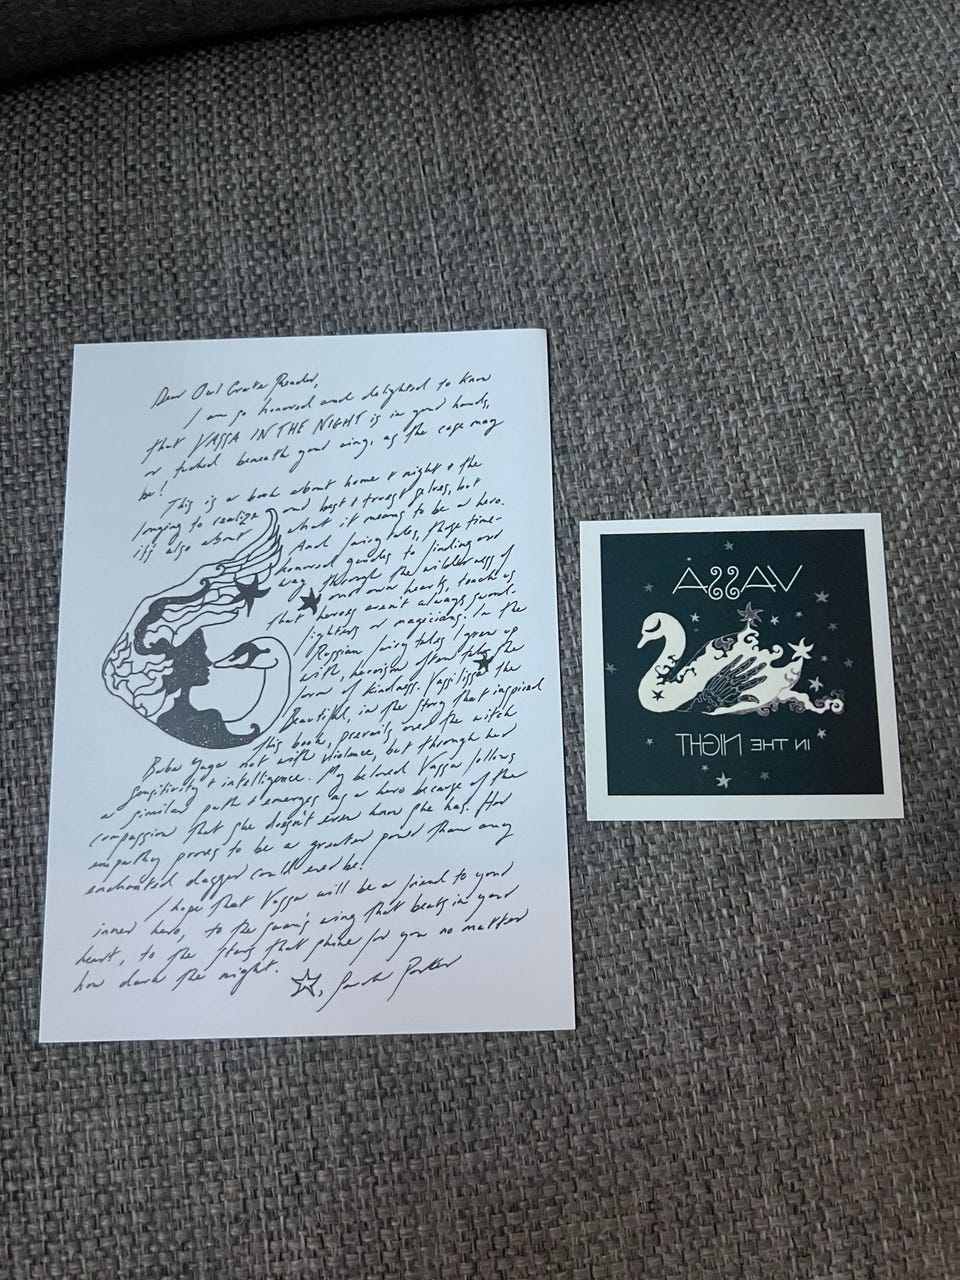 Dear Owl Crate Reader,
I am so honored and delighted to know
that VASSA IN THE NIGHT is in your hands,
or tucked beneath your wing, as the case may
be!
This is a book about home + night + the
longing to realize our best + truest selves, but
it's also about what it means to be a hero.
And fairy tales, those time-
honored guides to finding our
way through the wilderness of
our own hearts, teach us
that heroes aren't always sword-
fighters or magicians. In the
Russian fairy tales I grew up
with, heroism often takes the
form of kindness. Vassilissa the
Beautiful, in the story that inspired
this book, prevails over the witch
Baba Yaga not with violence, but through her
sensitivity + intelligence. My beloved Vassa follows
a similar path + emerges as a hero because of the
compassion that she doesn't even know she has. Her
empathy proves to be a greater power than any
enchanted dagger could ever be!
I hope that Vassa will be a friend to your
inner hero, to the swan's wing that beats in your
heart, to the stars that shine for you no matter
how dark the night.
, Sarah Porter
VASSA
IN THE NIGHT